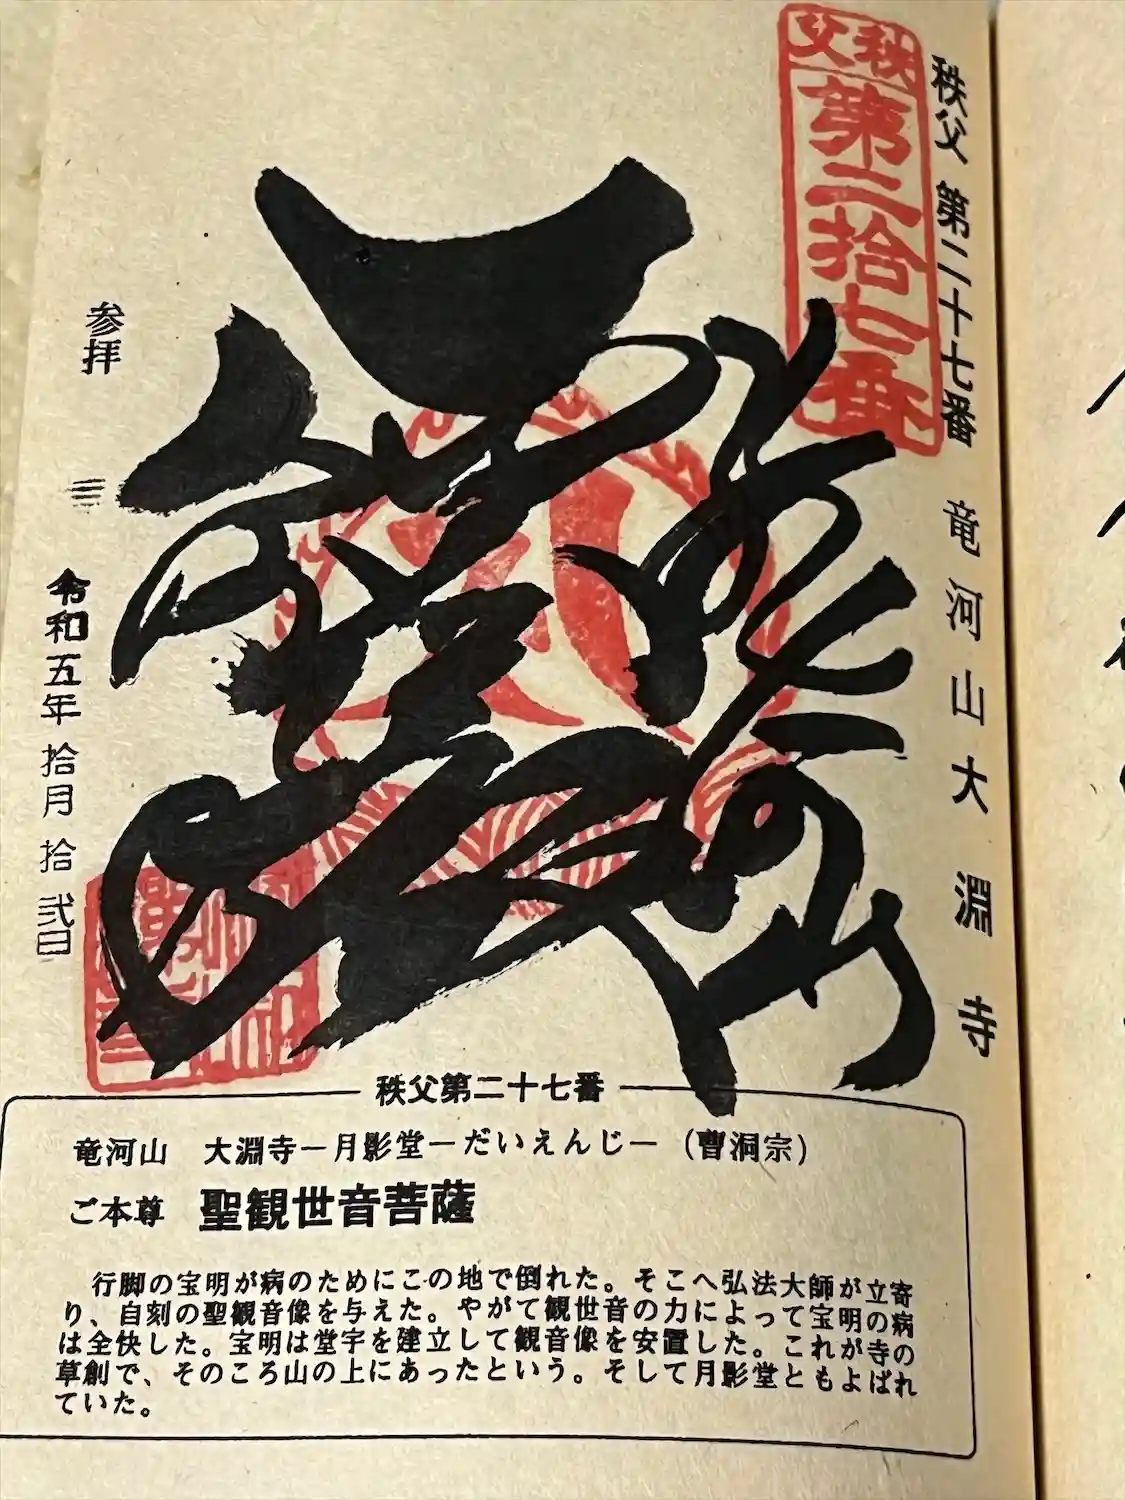 秩父 第二十七番 竜河山大淵寺
秩父
第二拾七番
竜河山
参拝
令和五年拾月拾弐日
秩父第二十七番
竜河山 大淵寺－月影堂－だいえんじ－（曹洞宗）
ご本尊 聖観世音菩薩
行脚の宝明が病のためにこの地で倒れた。そこへ弘法大師が立寄
り、自刻の聖観音像を与えた。やがて観世音の力によって宝明の病
は全快した。宝明は堂宇を建立して観音像を安置した。これが寺の
草創で、そのころ山の上にあったという。そして月影堂ともよばれ
ていた。